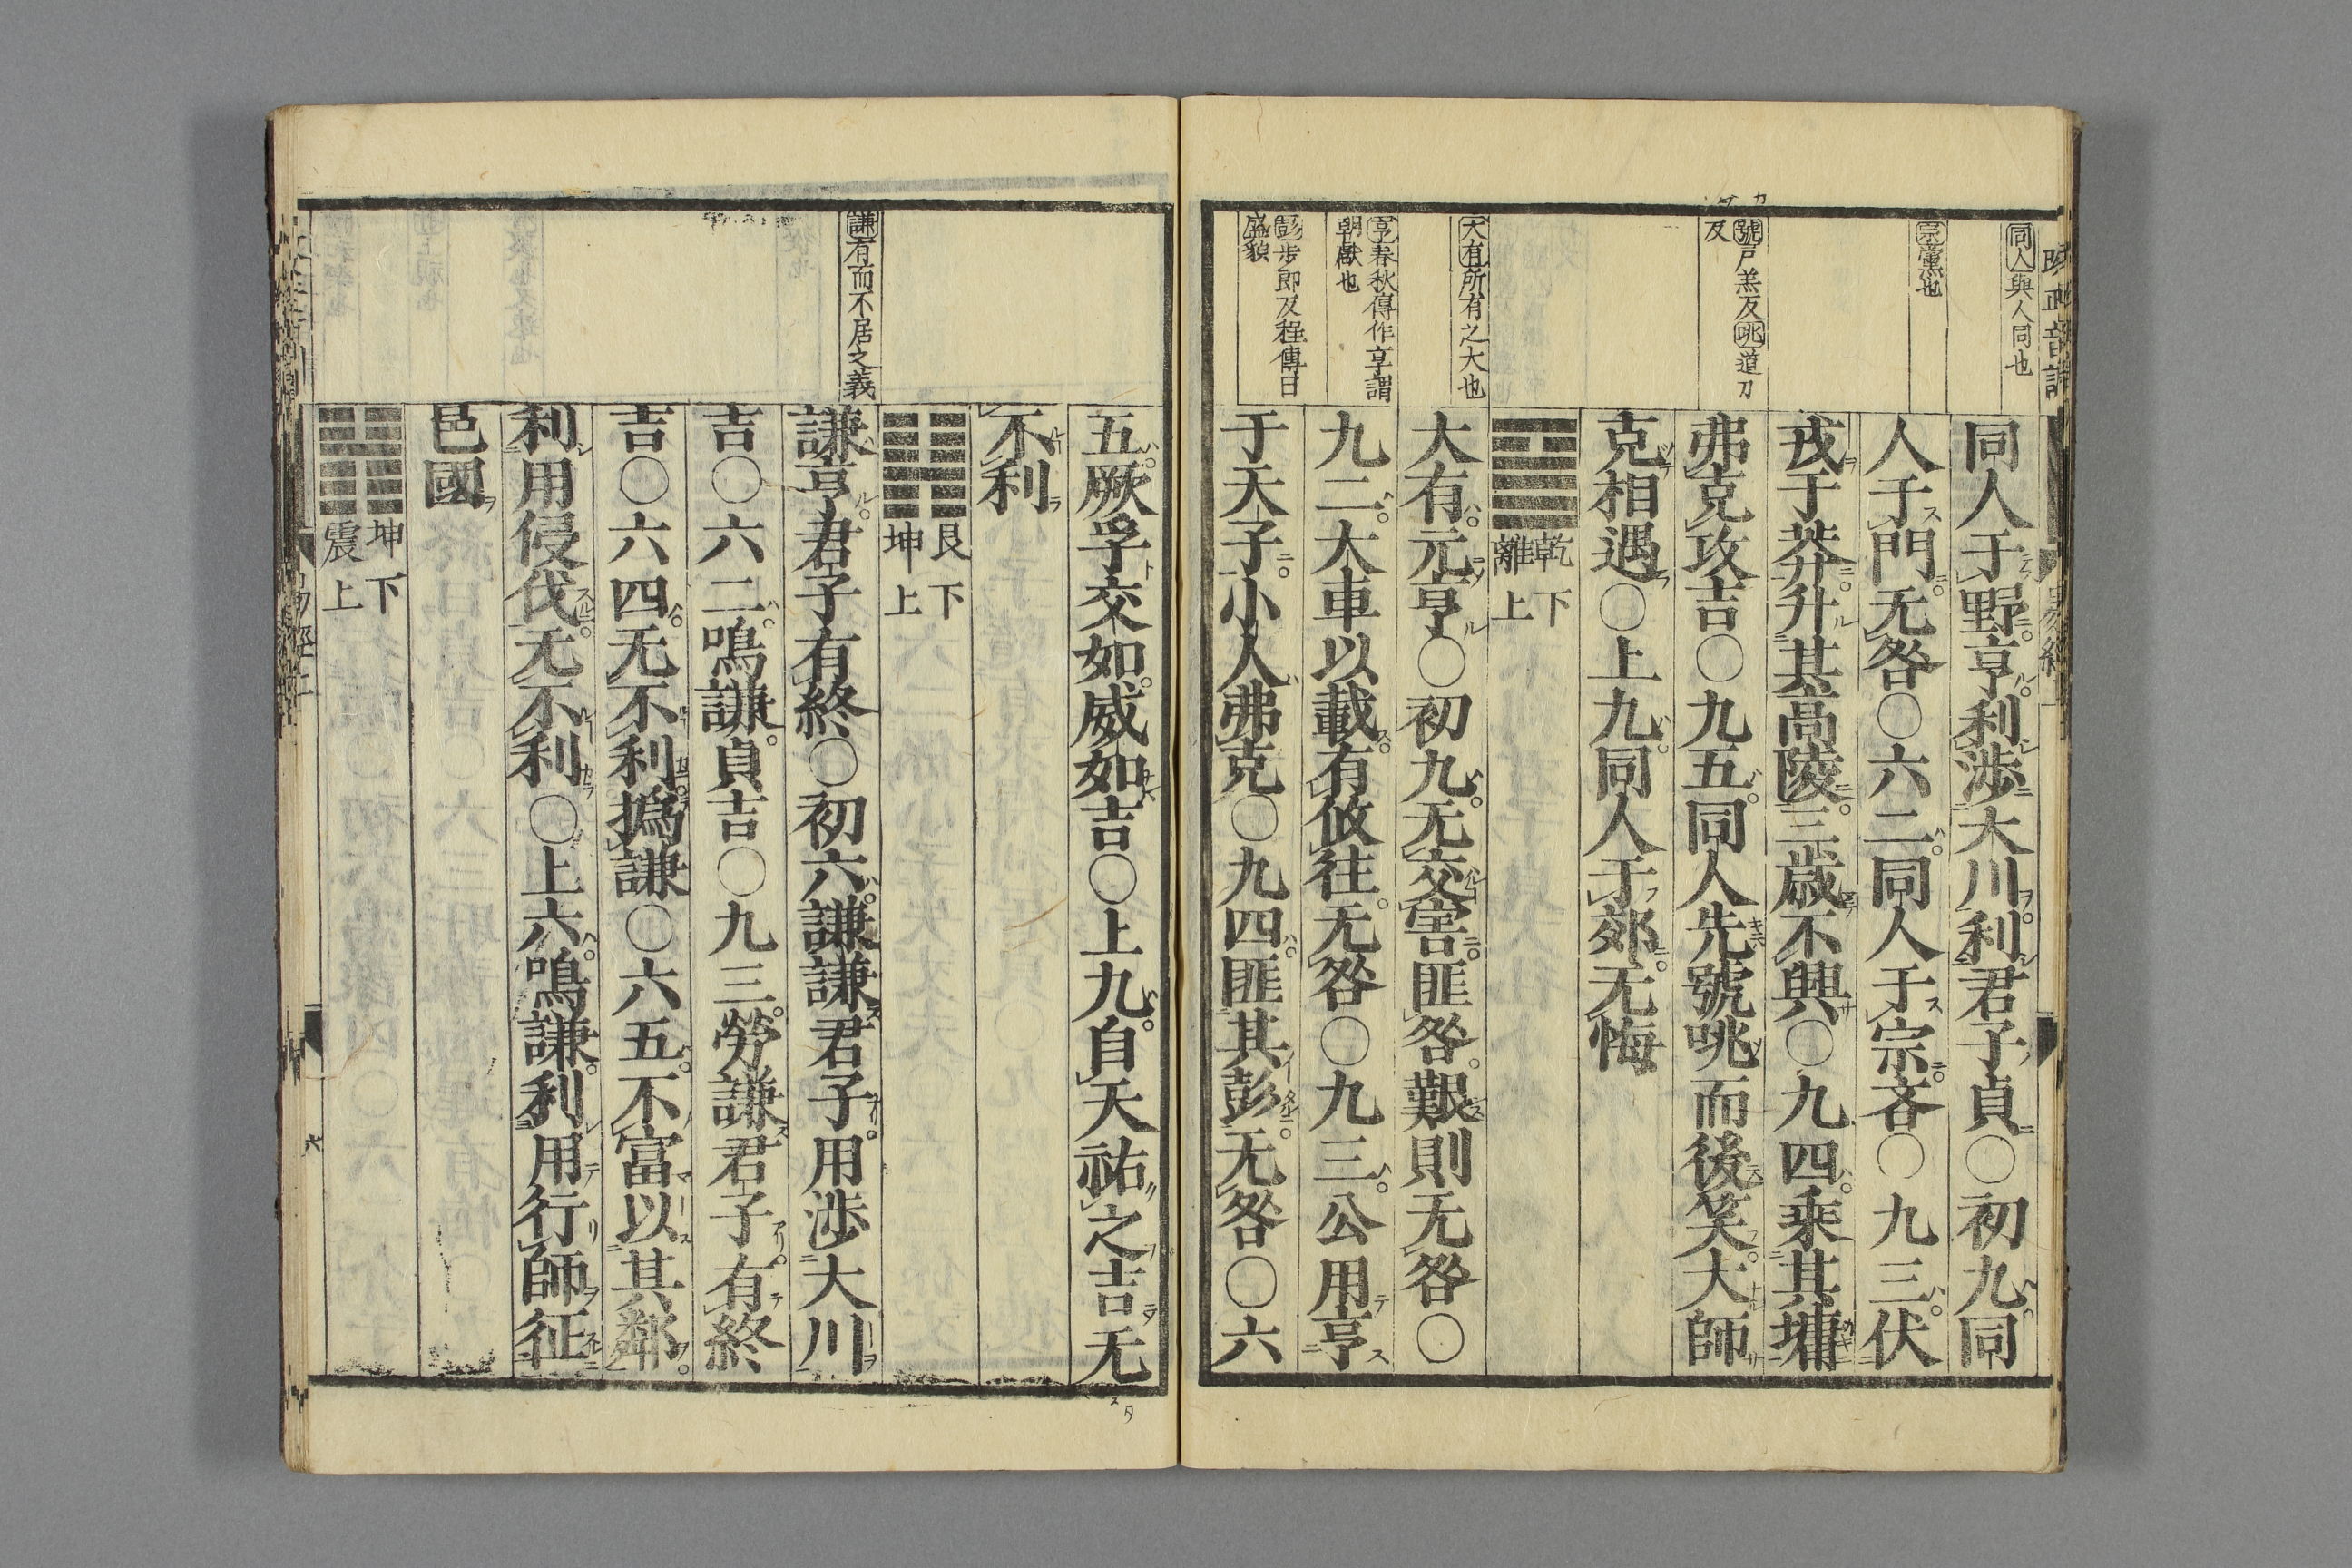 同人與人同也
宗黨也
號戸羔反咷道刀
反
大有所有之大也
亨春秋傳作享謂
朝獻也
彭步郎反程傳曰
盛貌
同人于野亨利渉大川利君子貞〇初九同
人于門无咎〇六二同人于宗吝〇九三伏
戎于莽升其高陵三歳不興〇九四乘其墉
弗克攻吉〇九五同人先號咷而後笑大師
克相遇〇上九同人于郊无悔
乾下
離上
大有元亨〇初九无交害匪咎艱則无咎〇
九二大車以載有攸往无咎〇九三公用亨
于天子小人弗克〇九四匪其彭无咎〇六
謙有而不居之義
五厥孚交如威如吉〇上九自天祐之吉无
不利
艮下
坤上
謙亨君子有終〇初六謙謙君子用渉大川
吉〇六二鳴謙貞吉〇九三勞謙君子有終
吉〇六四无不利撝謙〇六五不富以其鄰
利用侵伐无不利〇上六鳴謙利用行師征
邑國
坤下
震上